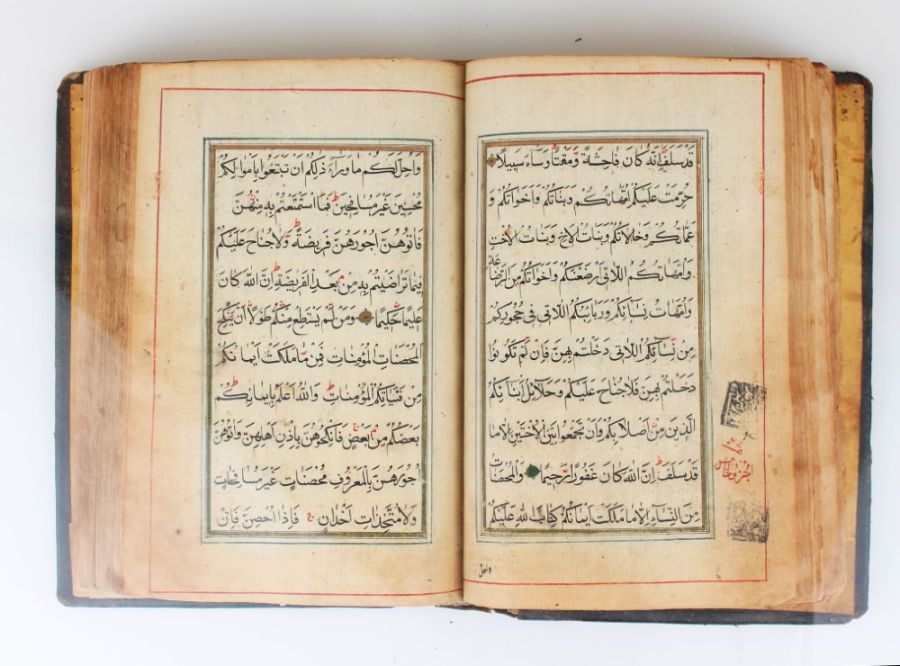 قَدْ سَلَفَ إِنَّهُ كَانَ فَاحِشَةً وَمَقْتًا وَسَاءَ سَبِيلًا
حُرِّمَتْ عَلَيْكُمْ أُمَّهَاتُكُمْ وَبَنَاتُكُمْ وَأَخَوَاتُكُمْ وَ
عَمَّاتُكُمْ وَخَالَاتُكُمْ وَبَنَاتُ الْأَخِ وَبَنَاتُ الْأُخْتِ
وَأُمَّهَاتُكُمُ اللَّاتِي أَرْضَعْنَكُمْ وَأَخَوَاتُكُمْ مِنَ الرَّضَاعَةِ
وَأُمَّهَاتُ نِسَائِكُمْ وَرَبَائِبُكُمُ اللَّاتِي فِي حُجُورِكُمْ
مِنْ نِسَائِكُمُ اللَّاتِي دَخَلْتُمْ بِهِنَّ فَإِنْ لَمْ تَكُونُوا
دَخَلْتُمْ بِهِنَّ فَلَا جُنَاحَ عَلَيْكُمْ وَحَلَائِلُ أَبْنَائِكُمُ
الَّذِينَ مِنْ أَصْلَابِكُمْ وَأَنْ تَجْمَعُوا بَيْنَ الْأُخْتَيْنِ إِلَّا مَا
قَدْ سَلَفَ إِنَّ اللَّهَ كَانَ غَفُورًا رَحِيمًا وَالْمُحْصَنَاتُ
مِنَ النِّسَاءِ إِلَّا مَا مَلَكَتْ أَيْمَانُكُمْ كِتَابَ اللَّهِ عَلَيْكُمْ
واحل
وَأُحِلَّ لَكُمْ مَا وَرَاءَ ذَلِكُمْ أَنْ تَبْتَغُوا بِأَمْوَالِكُمْ
مُحْصِنِينَ غَيْرَ مُسَافِحِينَ فَمَا اسْتَمْتَعْتُمْ بِهِ مِنْهُنَّ
فَآتُوهُنَّ أُجُورَهُنَّ فَرِيضَةً وَلَا جُنَاحَ عَلَيْكُمْ
فِيمَا تَرَاضَيْتُمْ بِهِ مِنْ بَعْدِ الْفَرِيضَةِ إِنَّ اللَّهَ كَانَ
عَلِيمًا حَكِيمًا وَمَنْ لَمْ يَسْتَطِعْ مِنْكُمْ طَوْلًا أَنْ يَنْكِحَ
الْمُحْصَنَاتِ الْمُؤْمِنَاتِ فَمِنْ مَا مَلَكَتْ أَيْمَانُكُمْ
مِنْ فَتَيَاتِكُمُ الْمُؤْمِنَاتِ وَاللَّهُ أَعْلَمُ بِإِيمَانِكُمْ
بَعْضُكُمْ مِنْ بَعْضٍ فَانْكِحُوهُنَّ بِإِذْنِ أَهْلِهِنَّ وَآتُوهُنَّ
أُجُورَهُنَّ بِالْمَعْرُوفِ مُحْصَنَاتٍ غَيْرَ مُسَافِحَاتٍ
وَلَا مُتَّخِذَاتِ أَخْدَانٍ فَإِذَا أُحْصِنَّ فَإِنْ